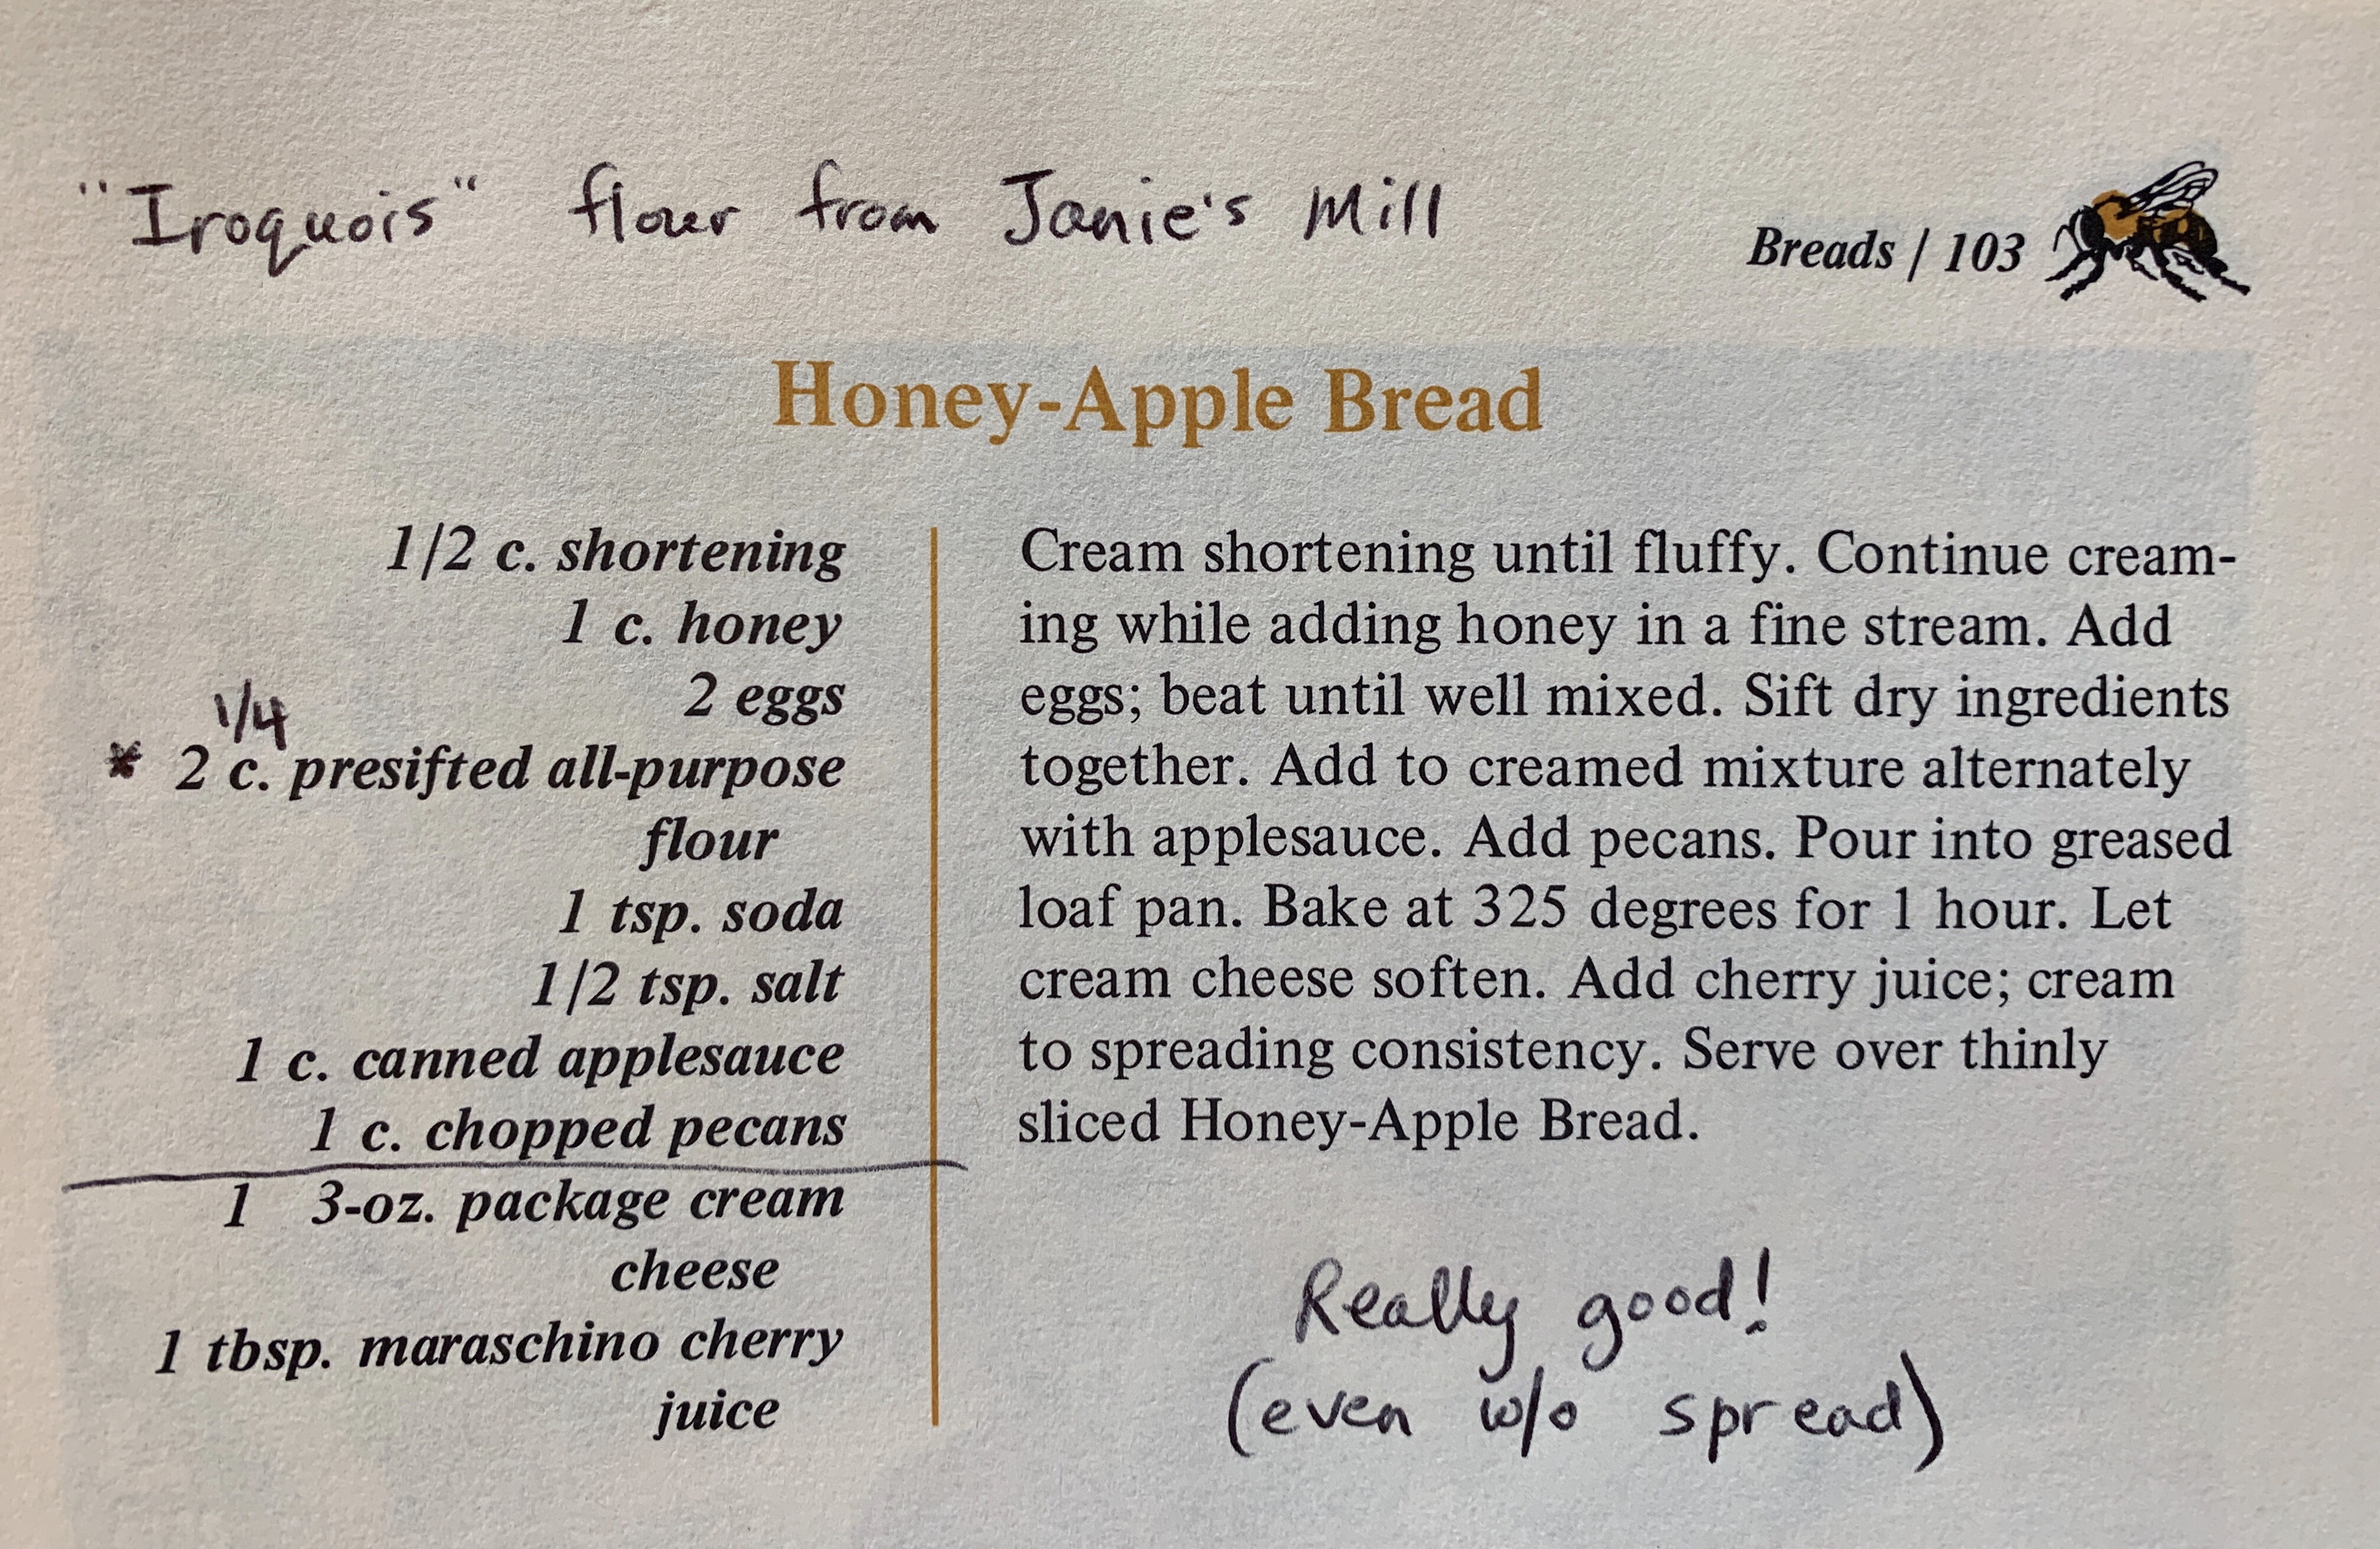 "Iroquois" flour from Janie's Mill
Breads / 103
Honey-Apple Bread
1/2 c. shortening
1 c. honey
2 eggs
1/4
* 2 c. presifted all-purpose
flour
1 tsp. soda
1/2 tsp. salt
1 c. canned applesauce
1 c. chopped pecans
1 3-oz. package cream
cheese
1 tbsp. maraschino cherry
juice
Cream shortening until fluffy. Continue cream-
ing while adding honey in a fine stream. Add
eggs; beat until well mixed. Sift dry ingredients
together. Add to creamed mixture alternately
with applesauce. Add pecans. Pour into greased
loaf pan. Bake at 325 degrees for 1 hour. Let
cream cheese soften. Add cherry juice; cream
to spreading consistency. Serve over thinly
sliced Honey-Apple Bread.
Really good!
(even w/o spread)